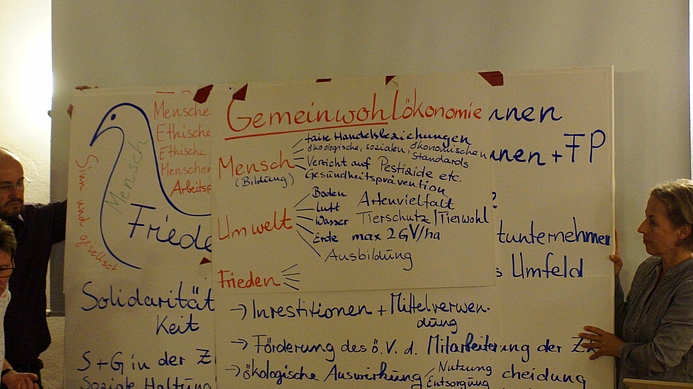 Gemeinwohlökonomie
Mensch
(Bildung)
faire Handelsbeziehungen
ökologische, sozialen, ökonomischen
Standards
Verzicht auf Pestizide etc.
Gesundheitsprävention
Umwelt
Boden
Luft
Wasser
Erde
Artenvielfalt
Tierschutz/Tierwohl
max 2GV/ha
Ausbildung
Frieden
→ Investitionen + Mittelverwen-
dung
→ Förderung des ö.V. d. Mitarbeiter
→ ökologische Auswirkung
Nutzung
Entsorgung
Mensche
Ethische
Ethische
Menschen
Arbeitsp
Mensch
Sinn und gesellsch
Friede
Solidarität
Keit
S+G in der Z
Soziale Haltung
nnen
nnen + FP
?
tunternehmen
s Umfeld
ung der Z
cheidung